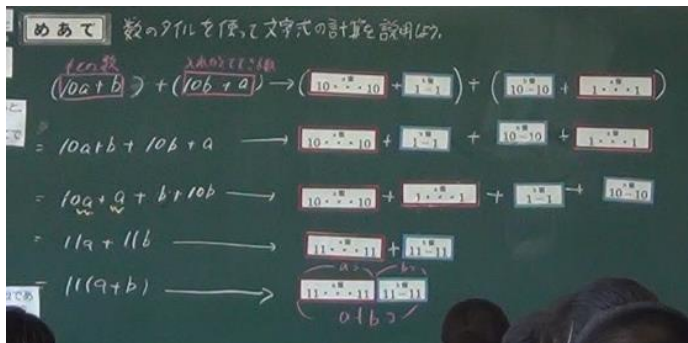 めあて 数のタイルを使って文字式の計算を説明しよう。
もとの数 入れかえてできる数
(10a+b) + (10b+a) → (10・・・10 + 1−1) + (10−10 + 1・・・1)
= 10a+b+10b+a → 10・・・10 + 1−1 + 10−10 + 1・・・1
= 10a+a+b+10b → 10・・・10 + 1・・・1 + 1−1 + 10−10
= 11a+11b → 11・・・11 + 11−11
aコ bコ
= 11(a+b) → 11・・・11 11−11
a+bコ